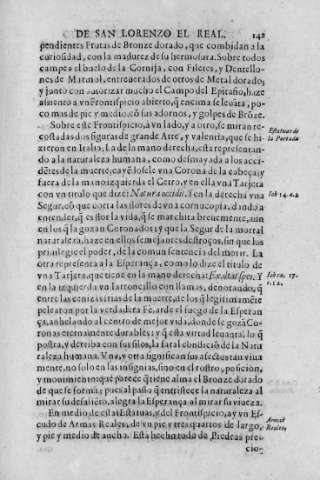 DE SAN LORENZO EL REAL. 142
pendientes Frutas de Bronze dorado, que combidan a la
curiosidad, con la madurez de su hermosura. Sobre todos
campea el buelo de la Cornija, con Filetes, y Dentello-
nes de Marmol, entreverados de otros de Metal dorado,
y junto con autorizar mucho el Campo del Epitafio, haze
assiento a vn Frontispicio abierto, q̃ encima se leuãta, po-
co mas de pie y medio, cõ sus adornos, y golpes de Brõze.
Sobre este Frontispicio, a vn lado, y a otro, se miran re-
costadas dos figuras de grande Arte, y valentia, que se hi-
zieron en Italia. La de la mano derecha, esta representan-
do a la naturaleza humana, como desmayada a los acci-
dẽtes de la muerte, cayẽ losele vna Corona de la cabeça, y
fuera de la mano izquierda el Cetro, y en ella vna Tarjeta
con vn titulo que dize: Natura occidit. Y en la derecha vna
Segur, cõ que corta las flores de vna cornucopia, dando a
entender, q̃ es flor la vida, q̃ se marchita breuemente, aun
en los q̃ la gozan Coronados; y que la Segur de la mortal
naturaleza, haze en ellos semejantes destroços, sin que los
priuilegie el poder, de la comun sentencia del morir. La
otra representa a la Esperança, como lo dize el titulo de
vna Tarjeta, que tiene en la mano derecha: Exaltat spes. Y
en la izquierda vn Iarroncillo con llamas, denotando, q̃
entre las cenizas frias de la muerte, de los q̃ legitimamẽte
pelearon por la verdadera Fè, arde el fuego de la Esperan
ça, anhelando al centro de mejor vida, donde se gozã Co-
ronas eternamente durables; y q̃ esta virtud leuanta, lo q̃
postra, y derriba con sus filos, la fatal cõndiciõ de la Natu
raleza humana. Vna, y otra significan sus afectos tan viua
mente, no solo en las insignias, sino en el rostro, posicion,
y mouimiento, q̃ parece q̃ tiene alma el Bronze dorado
de que se formã; pues al passo q̃ entristece la naturaleza al
mirar su desaliẽto, alegra la Esperança al mirar su viueza.
En medio de estas Estatuas, y del Frontispicio, ay vn Es-
cudo de Armas Reales, de vn pie y tres quartos de largo,
y pie y medio de ancho. Esta hecho todo de Piedras pre-
cio-
Estatuas de
la Portada
Iob 14. v. 2
Armas
Reales.